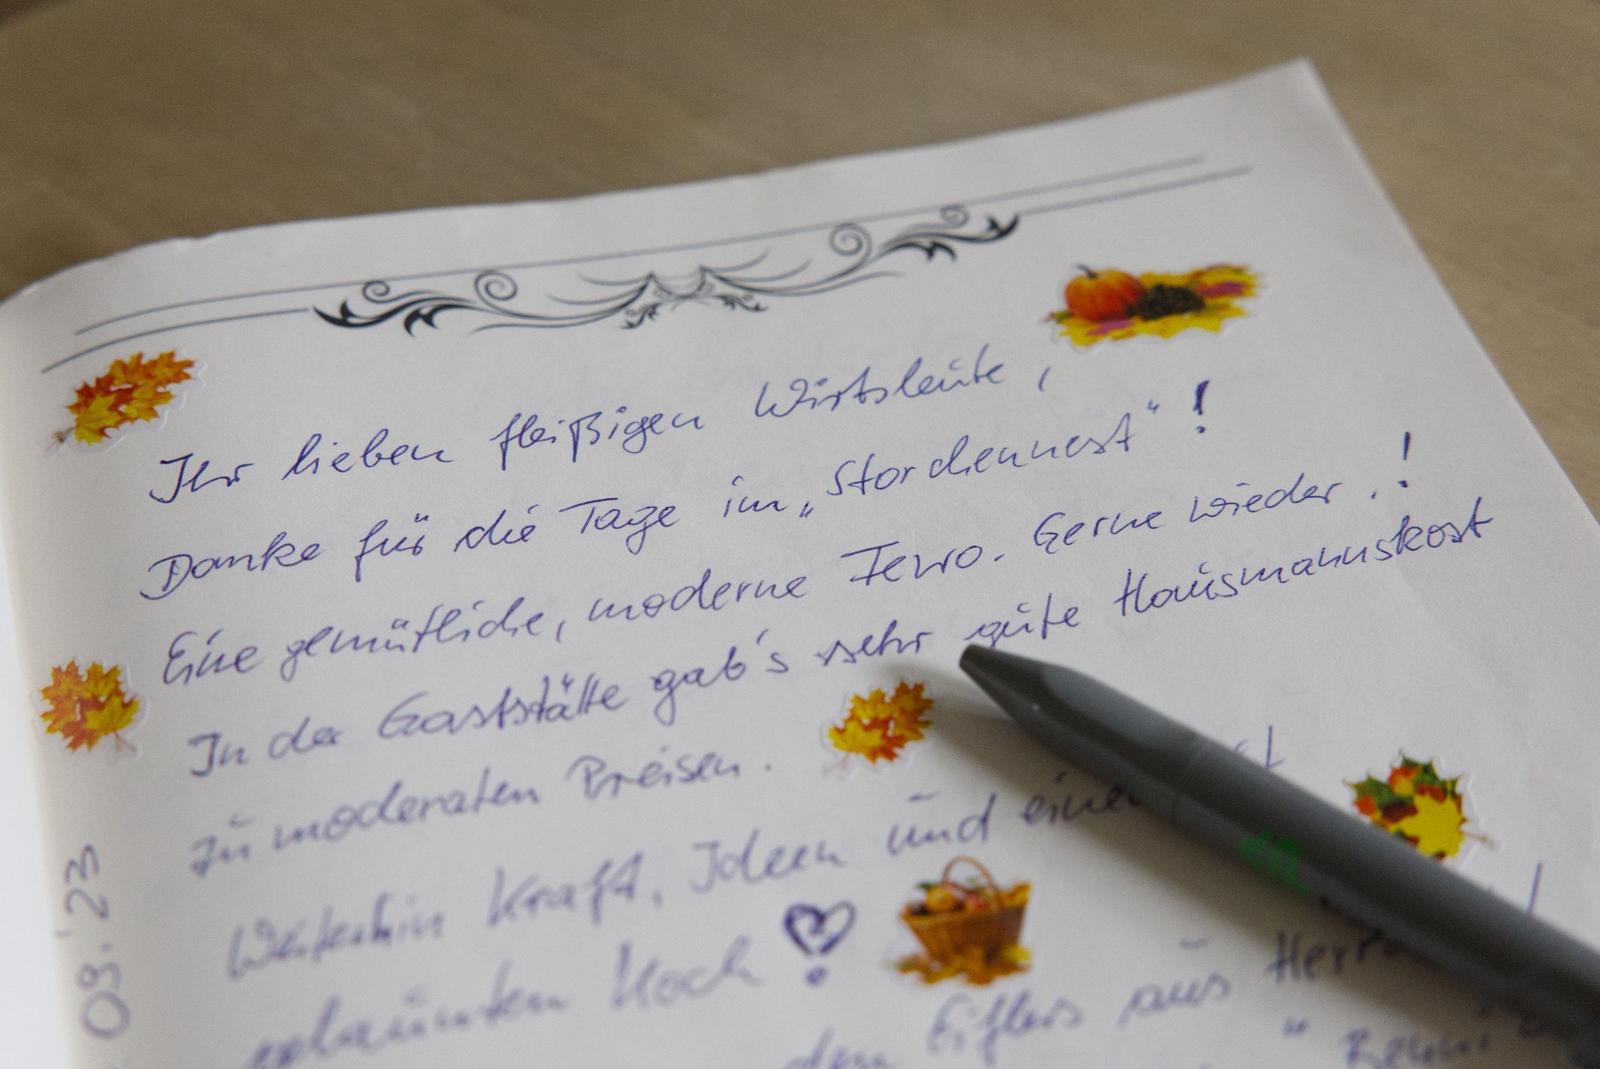 Ihr lieben fleißigen Wirtsleute,
Danke für die Tage im „Storchennest“!
Eine gemütliche, moderne Fewo. Gerne wieder.!
In der Gaststätte gab's sehr gute Hausmannskost
zu moderaten Preisen.
Weiterhin Kraft, Ideen und einen
gelaunten Koch
Eiflers aus
09.'23